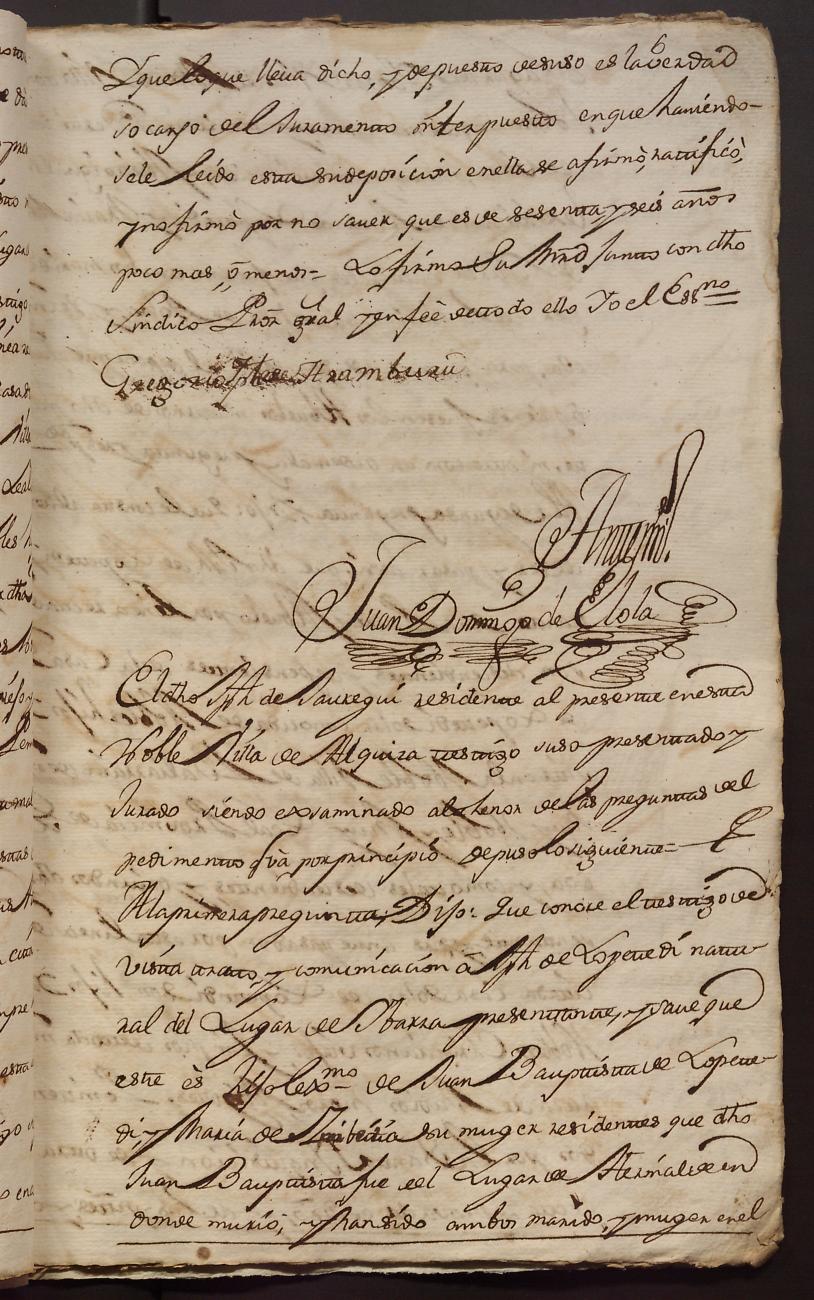 Y que lo que lleva dicho, y depuesto desuso es la verdad
so cargo del Juramento interpuesto en que haviendo-
sele leido esta su deposicion en ella se afirmò, ratificò,
y no firmò por no saver, que es de sesenta y seis años
poco mas, ò menos = Lo firmo Su Mrd Junto con dho
Sindico Pror gral y en feè de todo ello Yo el Essno
Gregorio Jphe Aramburu
Antemi
Juan Domingo de Elola
El dho Jph de Jauregui residente al presente en esta
Noble Villa de Alquiza testigo suso presentado y
Jurado siendo exsaminado al thenor de las preguntas del
pedimento por principio depuso lo siguiente =
A la primera pregunta, Dijo: Que conoce el testigo de
vista trato, y comunicacion à Jph de Lopetedi natu-
ral del Lugar de Ibarra presentante, y save que
este ès hijo lexmo de Juan Bauptista de Lopete-
di y Maria de su muger residentes que dho
Juan Bauptista fue del Lugar de en
donde muriò; y han sido ambos marido, y muger en el